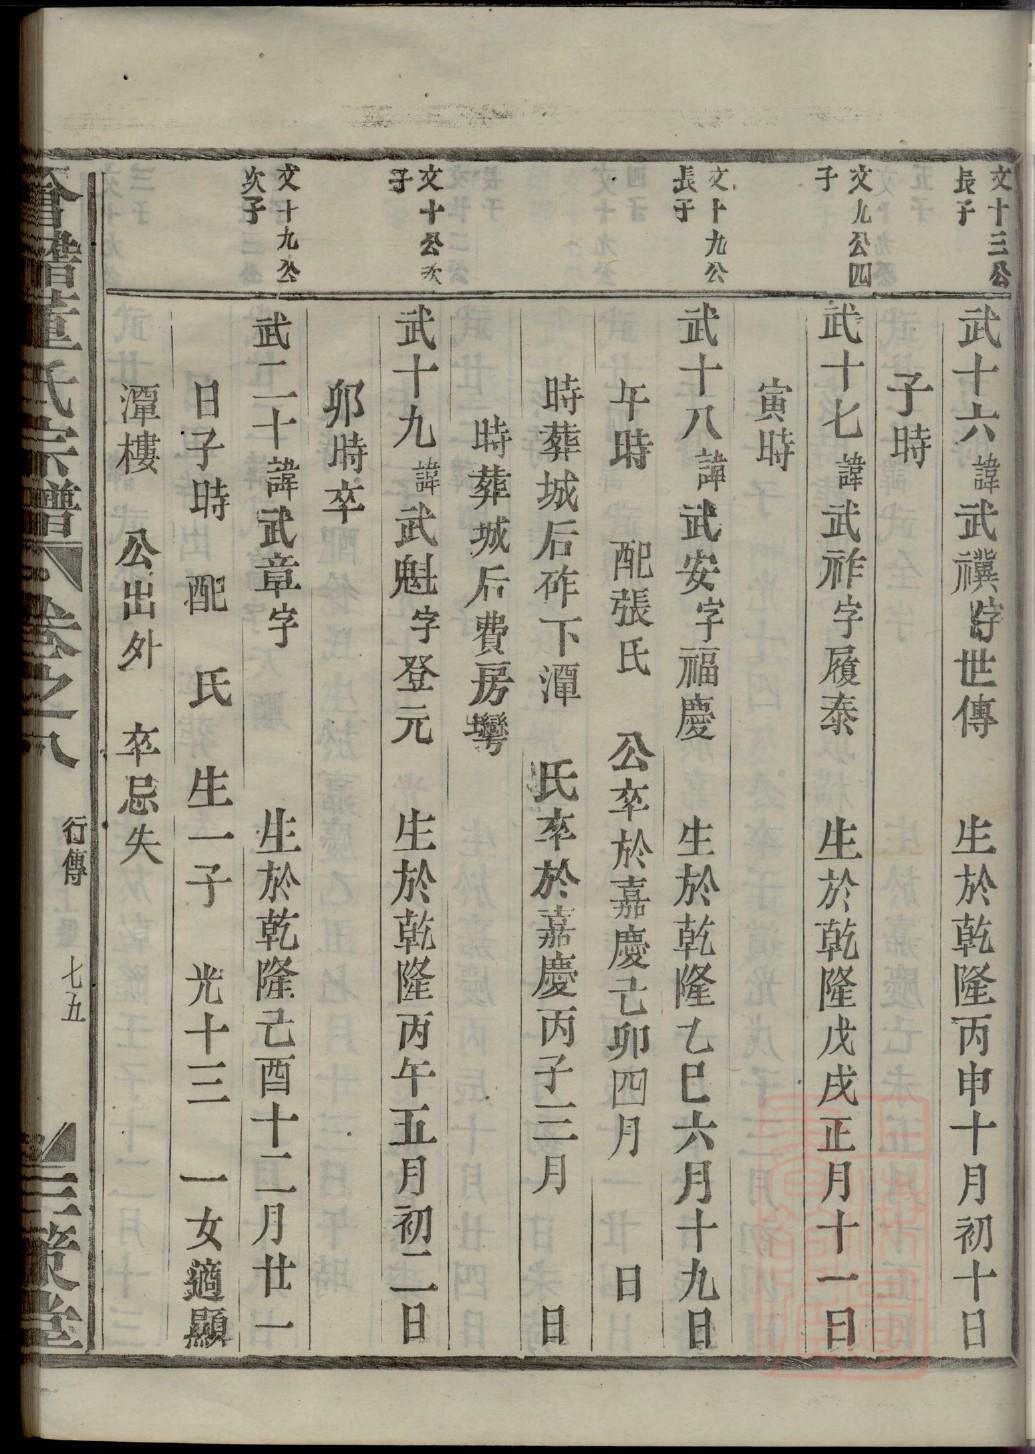 文十三公
長子
武十六諱武禩字世傳 生於乾隆丙申十月初十日
子時
文九公四
子
武十七諱武祚字履泰 生於乾隆戊戌正月十一日
寅時
文十九公
長子
武十八諱武安字福慶 生於乾隆乙巳六月十九日
午時 配張氏 公卒於嘉慶己卯四月 日
時葬城后砟下潭 氏卒於嘉慶丙子三月 日
時葬城后費房
文十公次
子
武十九諱武魁字登元 生於乾隆丙午五月初二日
卯時卒
文十九公
次子
武二十諱武章字 生於乾隆己酉十二月廿一
日子時 配 氏 生一子 光十三 一女適顯
潭樓 公出外 卒忌失
董氏宗譜 卷之八 行傳 七五 三策堂